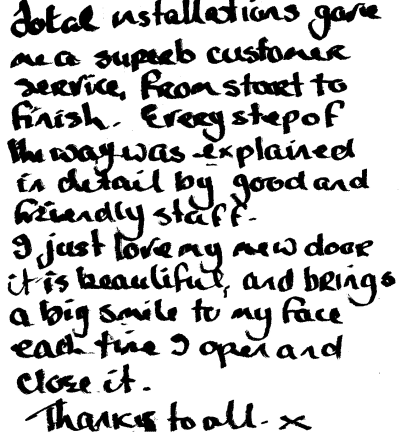 Total installations gave
me a superb customer
service, from start to
finish. Every step of
the way was explained
in detail by good and
friendly staff.
I just love my new door
it is beautiful, and brings
a big smile to my face
each time I open and
close it.
Thanks to all. x